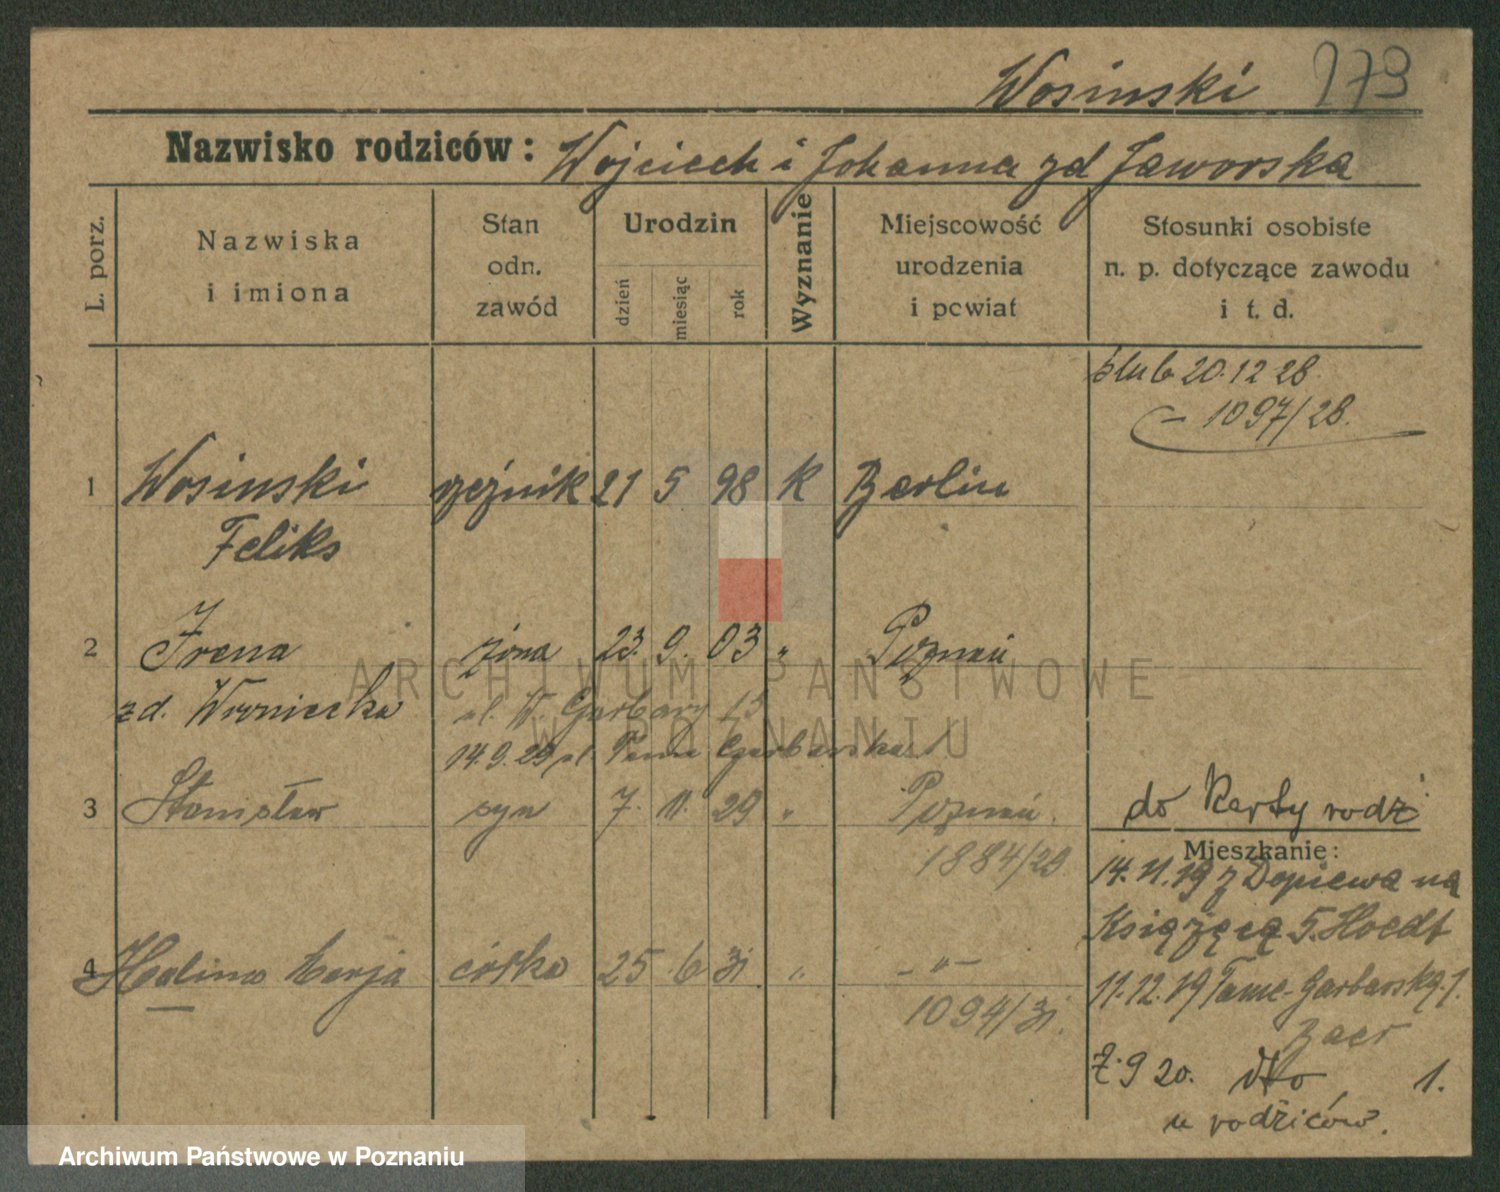 Wosinski 179
Nazwisko rodziców: Wojciech i Johanna zd Jaworska
L. porz.
Nazwiska
i imiona
Stan
odn.
zawód
Urodzin
dzień
miesiąc
rok
Wyznanie
Miejscowość
urodzenia
i powiat
Stosunki osobiste
n. p. dotyczące zawodu
i t. d.
ślub 20.12 28
1097/28.
1 Wosinski rzeźnik 21 5 98 K Berlin
Feliks
2 Irena żona 23. 9. 03 " Poznań
zd. Wroniecka ul. W. Garbary 13
14 9. 29 ul. Tama Garbarska 1
3 Stanisław syn 7. 11. 29 " Poznań.
1884/29
do Karty rodz
Mieszkanie:
14. 11. 19 z Dopiewa na
Książęcą 5. Hoedt
4 Halina Marja córka 25. 6 31. " - " -
1094/31.
11. 12. 19 Tama-Garbarską 1.
9 20. dto 1.
u rodziców.
ARCHIWUM PAŃSTWOWE
W POZNANIU
Archiwum Państwowe w Poznaniu